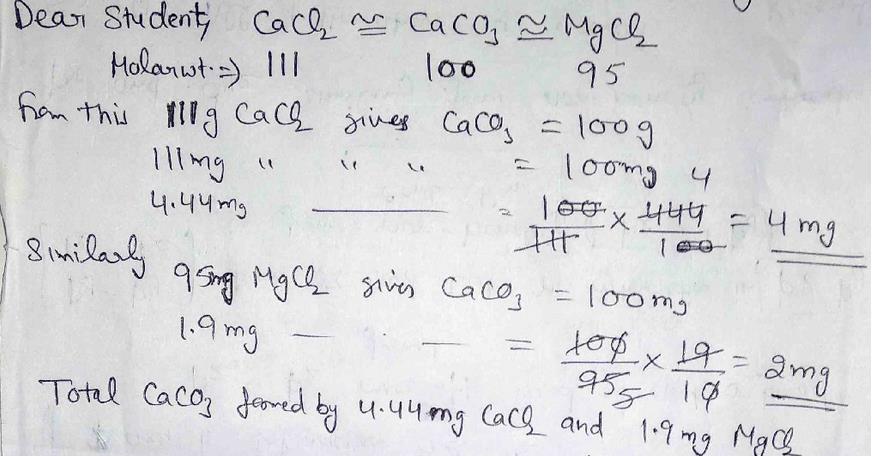 Dear Student, CaCl2 ≅ CaCO3 ≅ MgCl2
Molar wt. ⇒ 111 100 95
from this 111g CaCl2 gives CaCO3 = 100g
111mg " " " = 100mg
4.44mg ——— = 100/111 × 444/100 4 = 4 mg
Similarly
95mg MgCl2 gives CaCO3 = 100mg
1.9mg — . — = 100/95 5 × 19/10 = 2mg
Total CaCO3 formed by 4.44mg CaCl2 and 1.9mg MgCl2